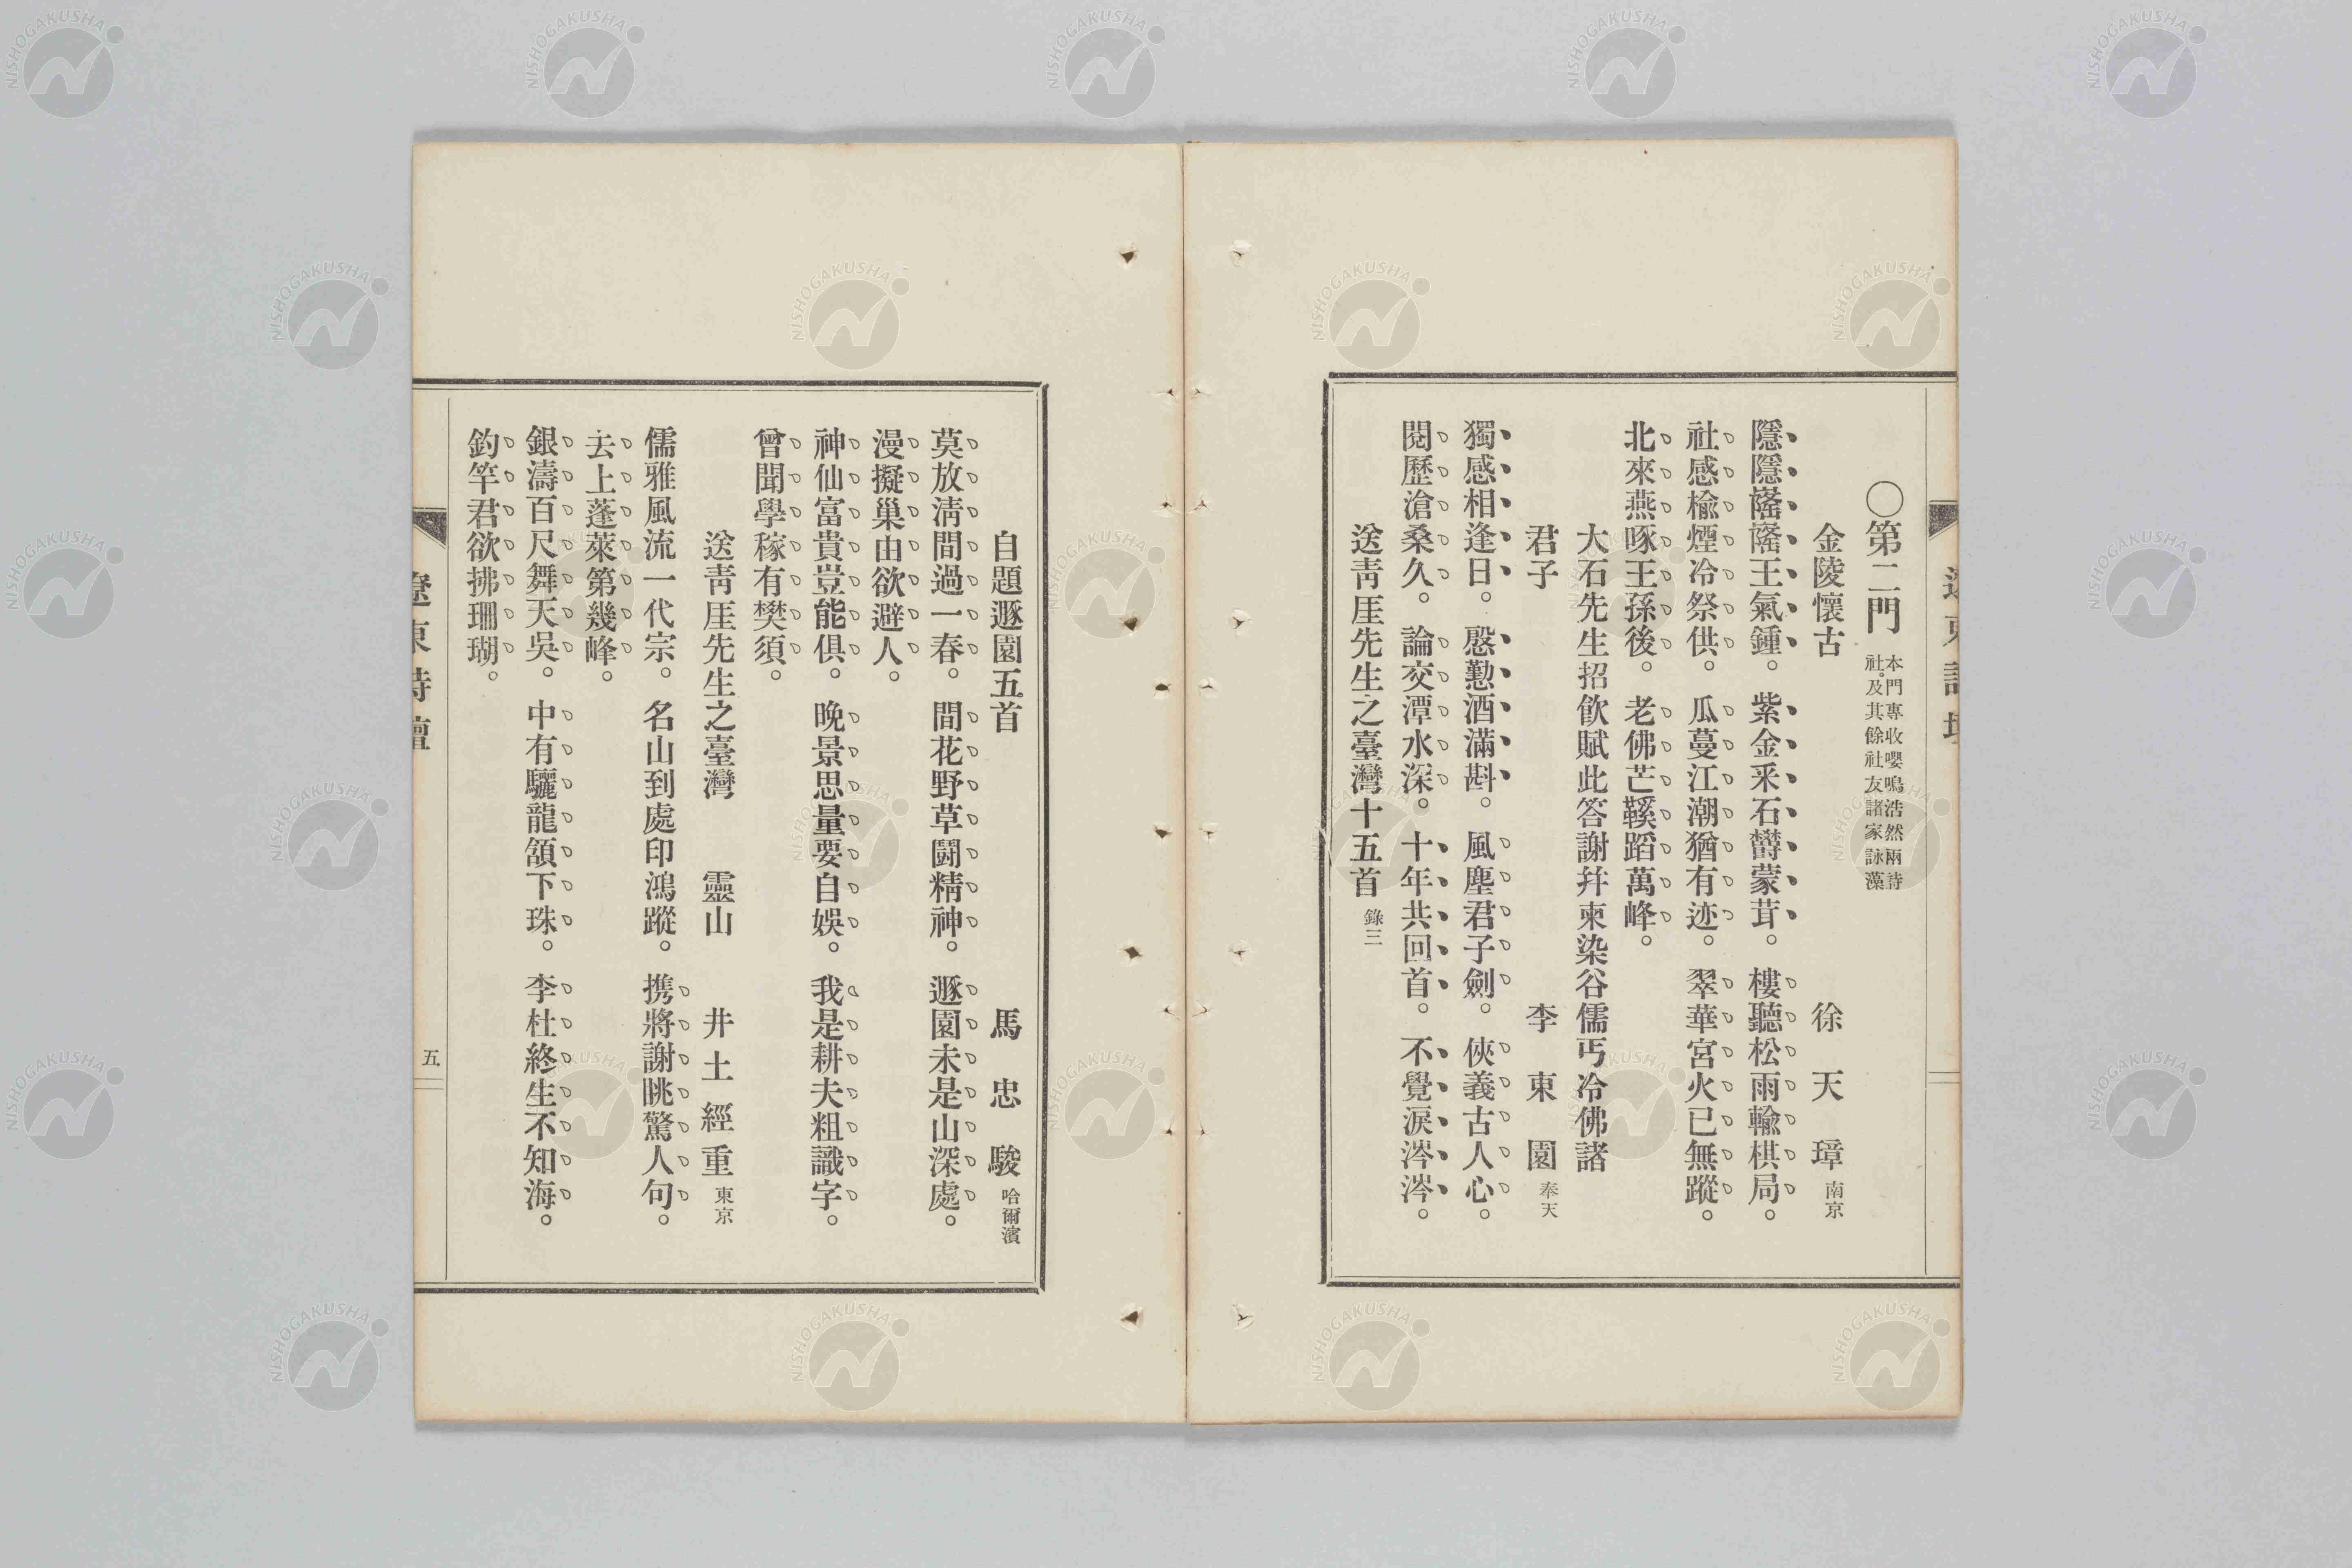 〇第二門 本門專收嚶鳴浩然兩詩
社。及其餘社友諸家詠藻
金陵懷古 徐天璋 南京
隱隱窿窿王氣鍾。紫金釆石鬱蒙茸。樓聽松雨輸棋局。
社感楡煙冷祭供。瓜蔓江潮猶有迹。翠華宮火已無蹤。
北來燕啄王孫後。老佛芒鞵蹈萬峰。
大石先生招飮賦此答謝幷柬染谷儒丐冷佛諸
君子 李東園 奉天
獨感相逢日。慇懃酒滿斟。風塵君子劍。俠義古人心。
閱歷滄桑久。論交潭水深。十年共回首。不覺淚涔涔。
送靑厓先生之臺灣十五首 錄三
自題遯園五首 馬忠駿 哈爾濱
莫放淸閒過一春。閒花野草鬪精神。遯園未是山深處。
漫擬巢由欲避人。
神仙富貴豈能俱。晚景思量要自娛。我是耕夫粗識字。
曾聞學稼有樊須。
送靑厓先生之臺灣 靈山 井土經重 東京
儒雅風流一代宗。名山到處印鴻蹤。携將謝眺驚人句。
去上蓬萊第幾峰。
銀濤百尺舞天吳。中有驪龍頷下珠。李杜終生不知海。
釣竿君欲拂珊瑚。
遼東詩壇
五